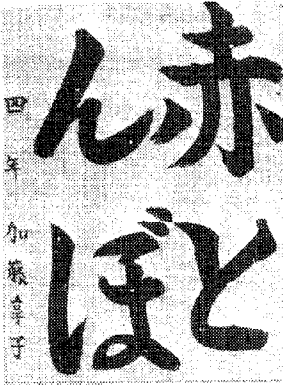 赤と
んぼ
四年 加藤